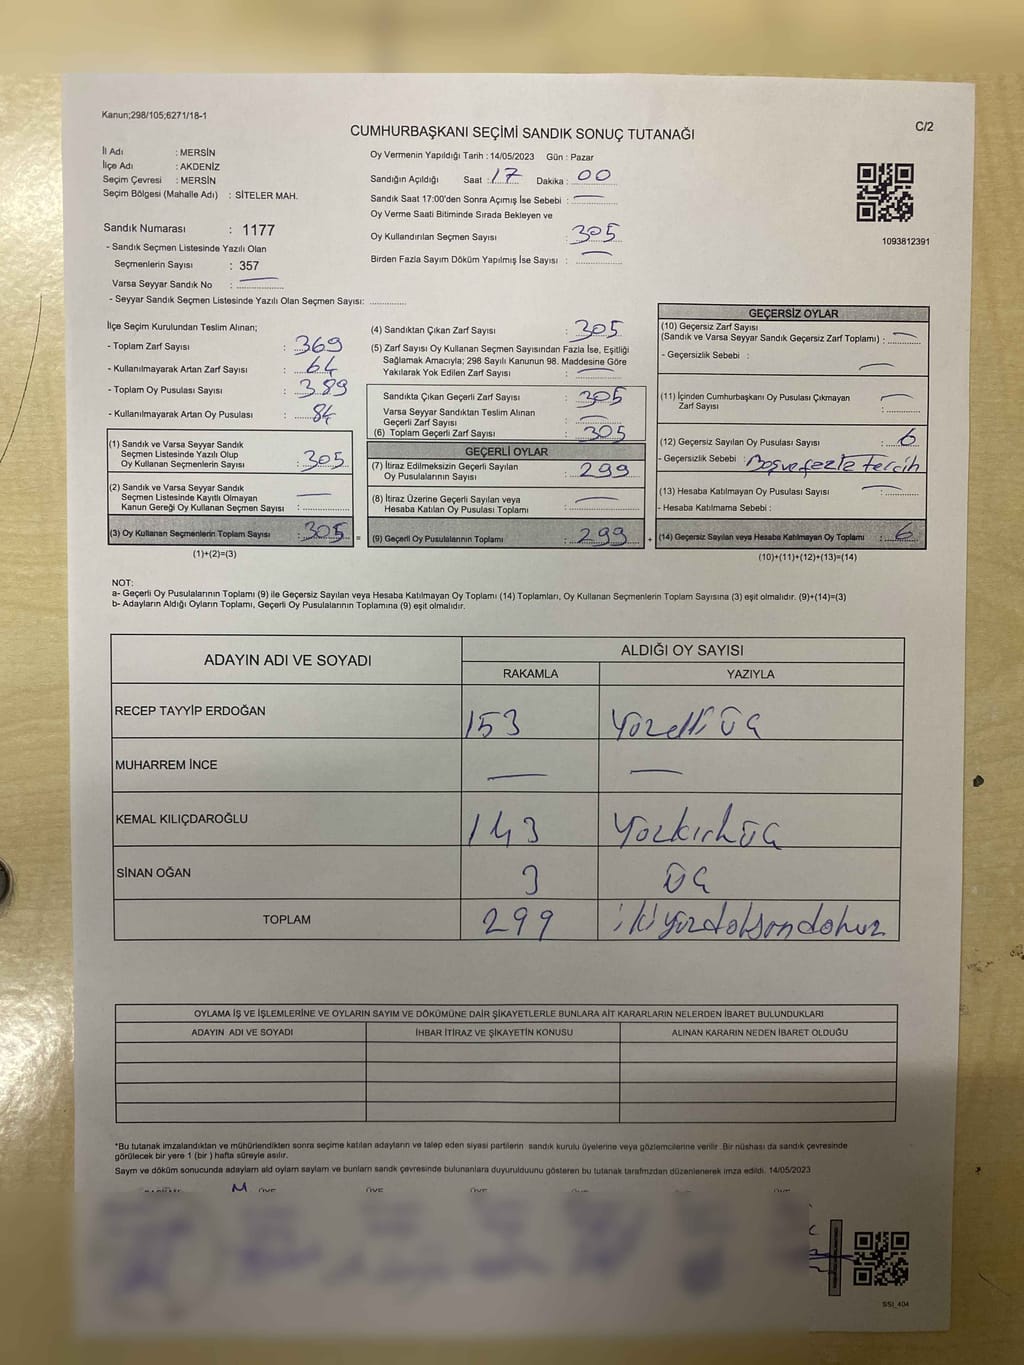 Kanun;298/105;6271/18-1
CUMHURBAŞKANI SEÇİMİ SANDIK SONUÇ TUTANAĞI
C/2
İl Adı : MERSİN
İlçe Adı : AKDENİZ
Seçim Çevresi : MERSİN
Seçim Bölgesi (Mahalle Adı) : SİTELER MAH.
Oy Vermenin Yapıldığı Tarih : 14/05/2023 Gün : Pazar
Sandığın Açıldığı Saat : 17 Dakika : 00
Sandık Saat 17:00'den Sonra Açımış İse Sebebi :
Oy Verme Saati Bitiminde Sırada Bekleyen ve
Oy Kullandırılan Seçmen Sayısı : 305
Birden Fazla Sayım Döküm Yapılmış İse Sayısı :
1093812391
Sandık Numarası : 1177
- Sandık Seçmen Listesinde Yazılı Olan
Seçmenlerin Sayısı : 357
Varsa Seyyar Sandık No :
- Seyyar Sandık Seçmen Listesinde Yazılı Olan Seçmen Sayısı:
İlçe Seçim Kurulundan Teslim Alınan;
- Toplam Zarf Sayısı : 369
- Kullanılmayarak Artan Zarf Sayısı : 64
- Toplam Oy Pusulası Sayısı : 389
- Kullanılmayarak Artan Oy Pusulası : 84
(1) Sandık ve Varsa Seyyar Sandık
Seçmen Listesinde Yazılı Olup
Oy Kullanan Seçmenlerin Sayısı : 305
(2) Sandık ve Varsa Seyyar Sandık
Seçmen Listesinde Kayıtlı Olmayan
Kanun Gereği Oy Kullanan Seçmen Sayısı :
(3) Oy Kullanan Seçmenlerin Toplam Sayısı : 305 =
(1)+(2)=(3)
(4) Sandıktan Çıkan Zarf Sayısı : 305
(5) Zarf Sayısı Oy Kullanan Seçmen Sayısından Fazla İse, Eşitliği
Sağlamak Amacıyla; 298 Sayılı Kanunun 98. Maddesine Göre
Yakılarak Yok Edilen Zarf Sayısı :
Sandıkta Çıkan Geçerli Zarf Sayısı : 305
Varsa Seyyar Sandıktan Teslim Alınan
Geçerli Zarf Sayısı :
(6) Toplam Geçerli Zarf Sayısı : 305
GEÇERLİ OYLAR
(7) İtiraz Edilmeksizin Geçerli Sayılan
Oy Pusulalarının Sayısı : 299
(8) İtiraz Üzerine Geçerli Sayılan veya
Hesaba Katılan Oy Pusulası Toplamı :
(9) Geçerli Oy Pusulalarının Toplamı : 299 +
GEÇERSİZ OYLAR
(10) Geçersiz Zarf Sayısı
(Sandık ve Varsa Seyyar Sandık Geçersiz Zarf Toplamı) :
- Geçersizlik Sebebi :
(11) İçinden Cumhurbaşkanı Oy Pusulası Çıkmayan
Zarf Sayısı :
(12) Geçersiz Sayılan Oy Pusulası Sayısı : 6
- Geçersizlik Sebebi : Boş ve fazla tercih
(13) Hesaba Katılmayan Oy Pusulası Sayısı :
- Hesaba Katılmama Sebebi :
(14) Geçersiz Sayılan veya Hesaba Katılmayan Oy Toplamı : 6
(10)+(11)+(12)+(13)=(14)
NOT:
a- Geçerli Oy Pusulalarının Toplamı (9) ile Geçersiz Sayılan veya Hesaba Katılmayan Oy Toplamı (14) Toplamları, Oy Kullanan Seçmenlerin Toplam Sayısına (3) eşit olmalıdır. (9)+(14)=(3)
b- Adayların Aldığı Oyların Toplamı, Geçerli Oy Pusulalarının Toplamına (9) eşit olmalıdır.
ADAYIN ADI VE SOYADI
ALDIĞI OY SAYISI
RAKAMLA YAZIYLA
RECEP TAYYİP ERDOĞAN 153 Yüzelli üç
MUHARREM İNCE
KEMAL KILIÇDAROĞLU 143 Yüzkırk üç
SİNAN OĞAN 3 üç
TOPLAM 299 iki yüz doksan dokuz
OYLAMA İŞ VE İŞLEMLERİNE VE OYLARIN SAYIM VE DÖKÜMÜNE DAİR ŞİKAYETLERLE BUNLARA AİT KARARLARIN NELERDEN İBARET BULUNDUKLARI
ADAYIN ADI VE SOYADI İHBAR İTİRAZ VE ŞİKAYETİN KONUSU ALINAN KARARIN NEDEN İBARET OLDUĞU
*Bu tutanak imzalandıktan ve mühürlendikten sonra seçime katılan adayların ve talep eden siyasi partilerin sandık kurulu üyelerine veya gözlemcilerine verilir .Bir nüshası da sandık çevresinde
görülecek bir yere 1 (bir ) hafta süreyle asılır.
Saym ve döküm sonucunda adaylarn ald oylarn saylarn ve bunlarn sandk çevresinde bulunanlara duyurulduunu gösteren bu tutanak tarafmzdan düzenlenerek imza edildi. 14/05/2023
SSI_404